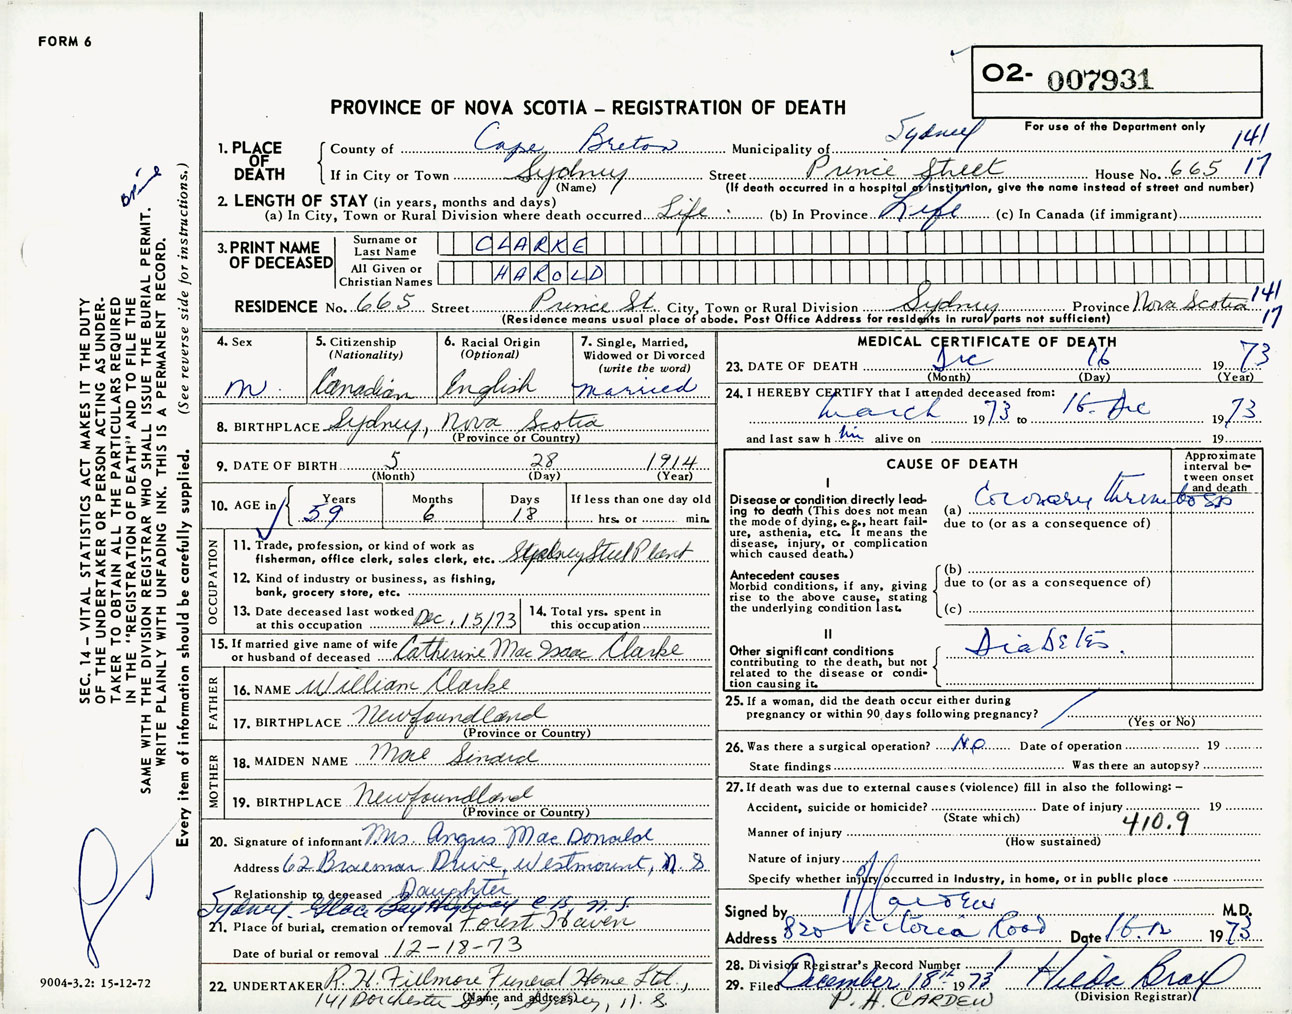 FORM 6
O2- 007931
PROVINCE OF NOVA SCOTIA – REGISTRATION OF DEATH
For use of the Department only
1. PLACE OF DEATH
County of Cape Breton Municipality of Sydney 141
If in City or Town Sydney Street Prince Street House No. 665 17
(Name) (If death occurred in a hospital or institution, give the name instead of street and number)
2. LENGTH OF STAY (in years, months and days)
(a) In City, Town or Rural Division where death occurred Life (b) In Province Life (c) In Canada (if immigrant)
3. PRINT NAME OF DECEASED
Surname or Last Name CLARKE
All Given or Christian Names HAROLD
RESIDENCE No. 665 Street Prince St. City, Town or Rural Division Sydney Province Nova Scotia 141
17
(Residence means usual place of abode. Post Office Address for residents in rural parts not sufficient)
4. Sex
M.
5. Citizenship
(Nationality)
Canadian
6. Racial Origin
(Optional)
English
7. Single, Married, Widowed or Divorced
(write the word)
married
8. BIRTHPLACE Sydney, Nova Scotia
(Province or Country)
9. DATE OF BIRTH 5 28 1914
(Month) (Day) (Year)
10. AGE in Years Months Days If less than one day old
59 6 18 hrs. or min.
OCCUPATION
11. Trade, profession, or kind of work as
fisherman, office clerk, sales clerk, etc. Sydney Steel Plant
12. Kind of industry or business, as fishing,
bank, grocery store, etc.
13. Date deceased last worked
at this occupation Dec. 15/73
14. Total yrs. spent in
this occupation
15. If married give name of wife
or husband of deceased Catherine Mac Isaac Clarke
FATHER
16. NAME William Clarke
17. BIRTHPLACE Newfoundland
(Province or Country)
MOTHER
18. MAIDEN NAME
19. BIRTHPLACE Newfoundland
(Province or Country)
20. Signature of informant Mrs. Angus MacDonald
Address 62 Braemar Drive, Westmount, N. S
Relationship to deceased Daughter
Sydney. Glace Bay Highway C.B, N.S.
21. Place of burial, cremation or removal Forest Haven
Date of burial or removal 12-18-73
22. UNDERTAKER R. H. Fillmore Funeral Home Ltd.,
(Name and address)
141 Dorchester St., Sydney, N. S
MEDICAL CERTIFICATE OF DEATH
23. DATE OF DEATH Dec 16 1973
(Month) (Day) (Year)
24. I HEREBY CERTIFY that I attended deceased from:
March 1973 to 16. Dec 1973
and last saw him alive on 19
CAUSE OF DEATH
Approximate interval between onset and death
I
Disease or condition directly leading to death (This does not mean the mode of dying, e.g., heart failure, asthenia, etc. It means the disease, injury, or complication which caused death.)
(a) Coronary thrombosis
due to (or as a consequence of)
Antecedent causes
Morbid conditions, if any, giving rise to the above cause, stating the underlying condition last.
(b)
due to (or as a consequence of)
(c)
II
Other significant conditions
contributing to the death, but not related to the disease or condition causing it.
Diabetes.
25. If a woman, did the death occur either during
pregnancy or within 90 days following pregnancy?
(Yes or No)
26. Was there a surgical operation? No Date of operation 19
State findings Was there an autopsy?
27. If death was due to external causes (violence) fill in also the following:–
Accident, suicide or homicide? Date of injury 19
(State which)
410.9
Manner of injury
(How sustained)
Nature of injury
Specify whether injury occurred in industry, in home, or in public place
Signed by M.D.
Address 820 Victoria Road Date 16.12 1973
28. Division Registrar's Record Number 1
29. Filed December 18th 1973 Hilda Bray
(Division Registrar)
P. H. CARDEW
SEC. 14 – VITAL STATISTICS ACT MAKES IT THE DUTY
OF THE UNDERTAKER OR PERSON ACTING AS UNDER-
TAKER TO OBTAIN ALL THE PARTICULARS REQUIRED
IN THE "REGISTRATION OF DEATH" AND TO FILE THE
SAME WITH THE DIVISION REGISTRAR WHO SHALL ISSUE THE BURIAL PERMIT.
WRITE PLAINLY WITH UNFADING INK. THIS IS A PERMANENT RECORD.
Every item of information should be carefully supplied. (See reverse side for instructions.)
9004-3.2: 15-12-72